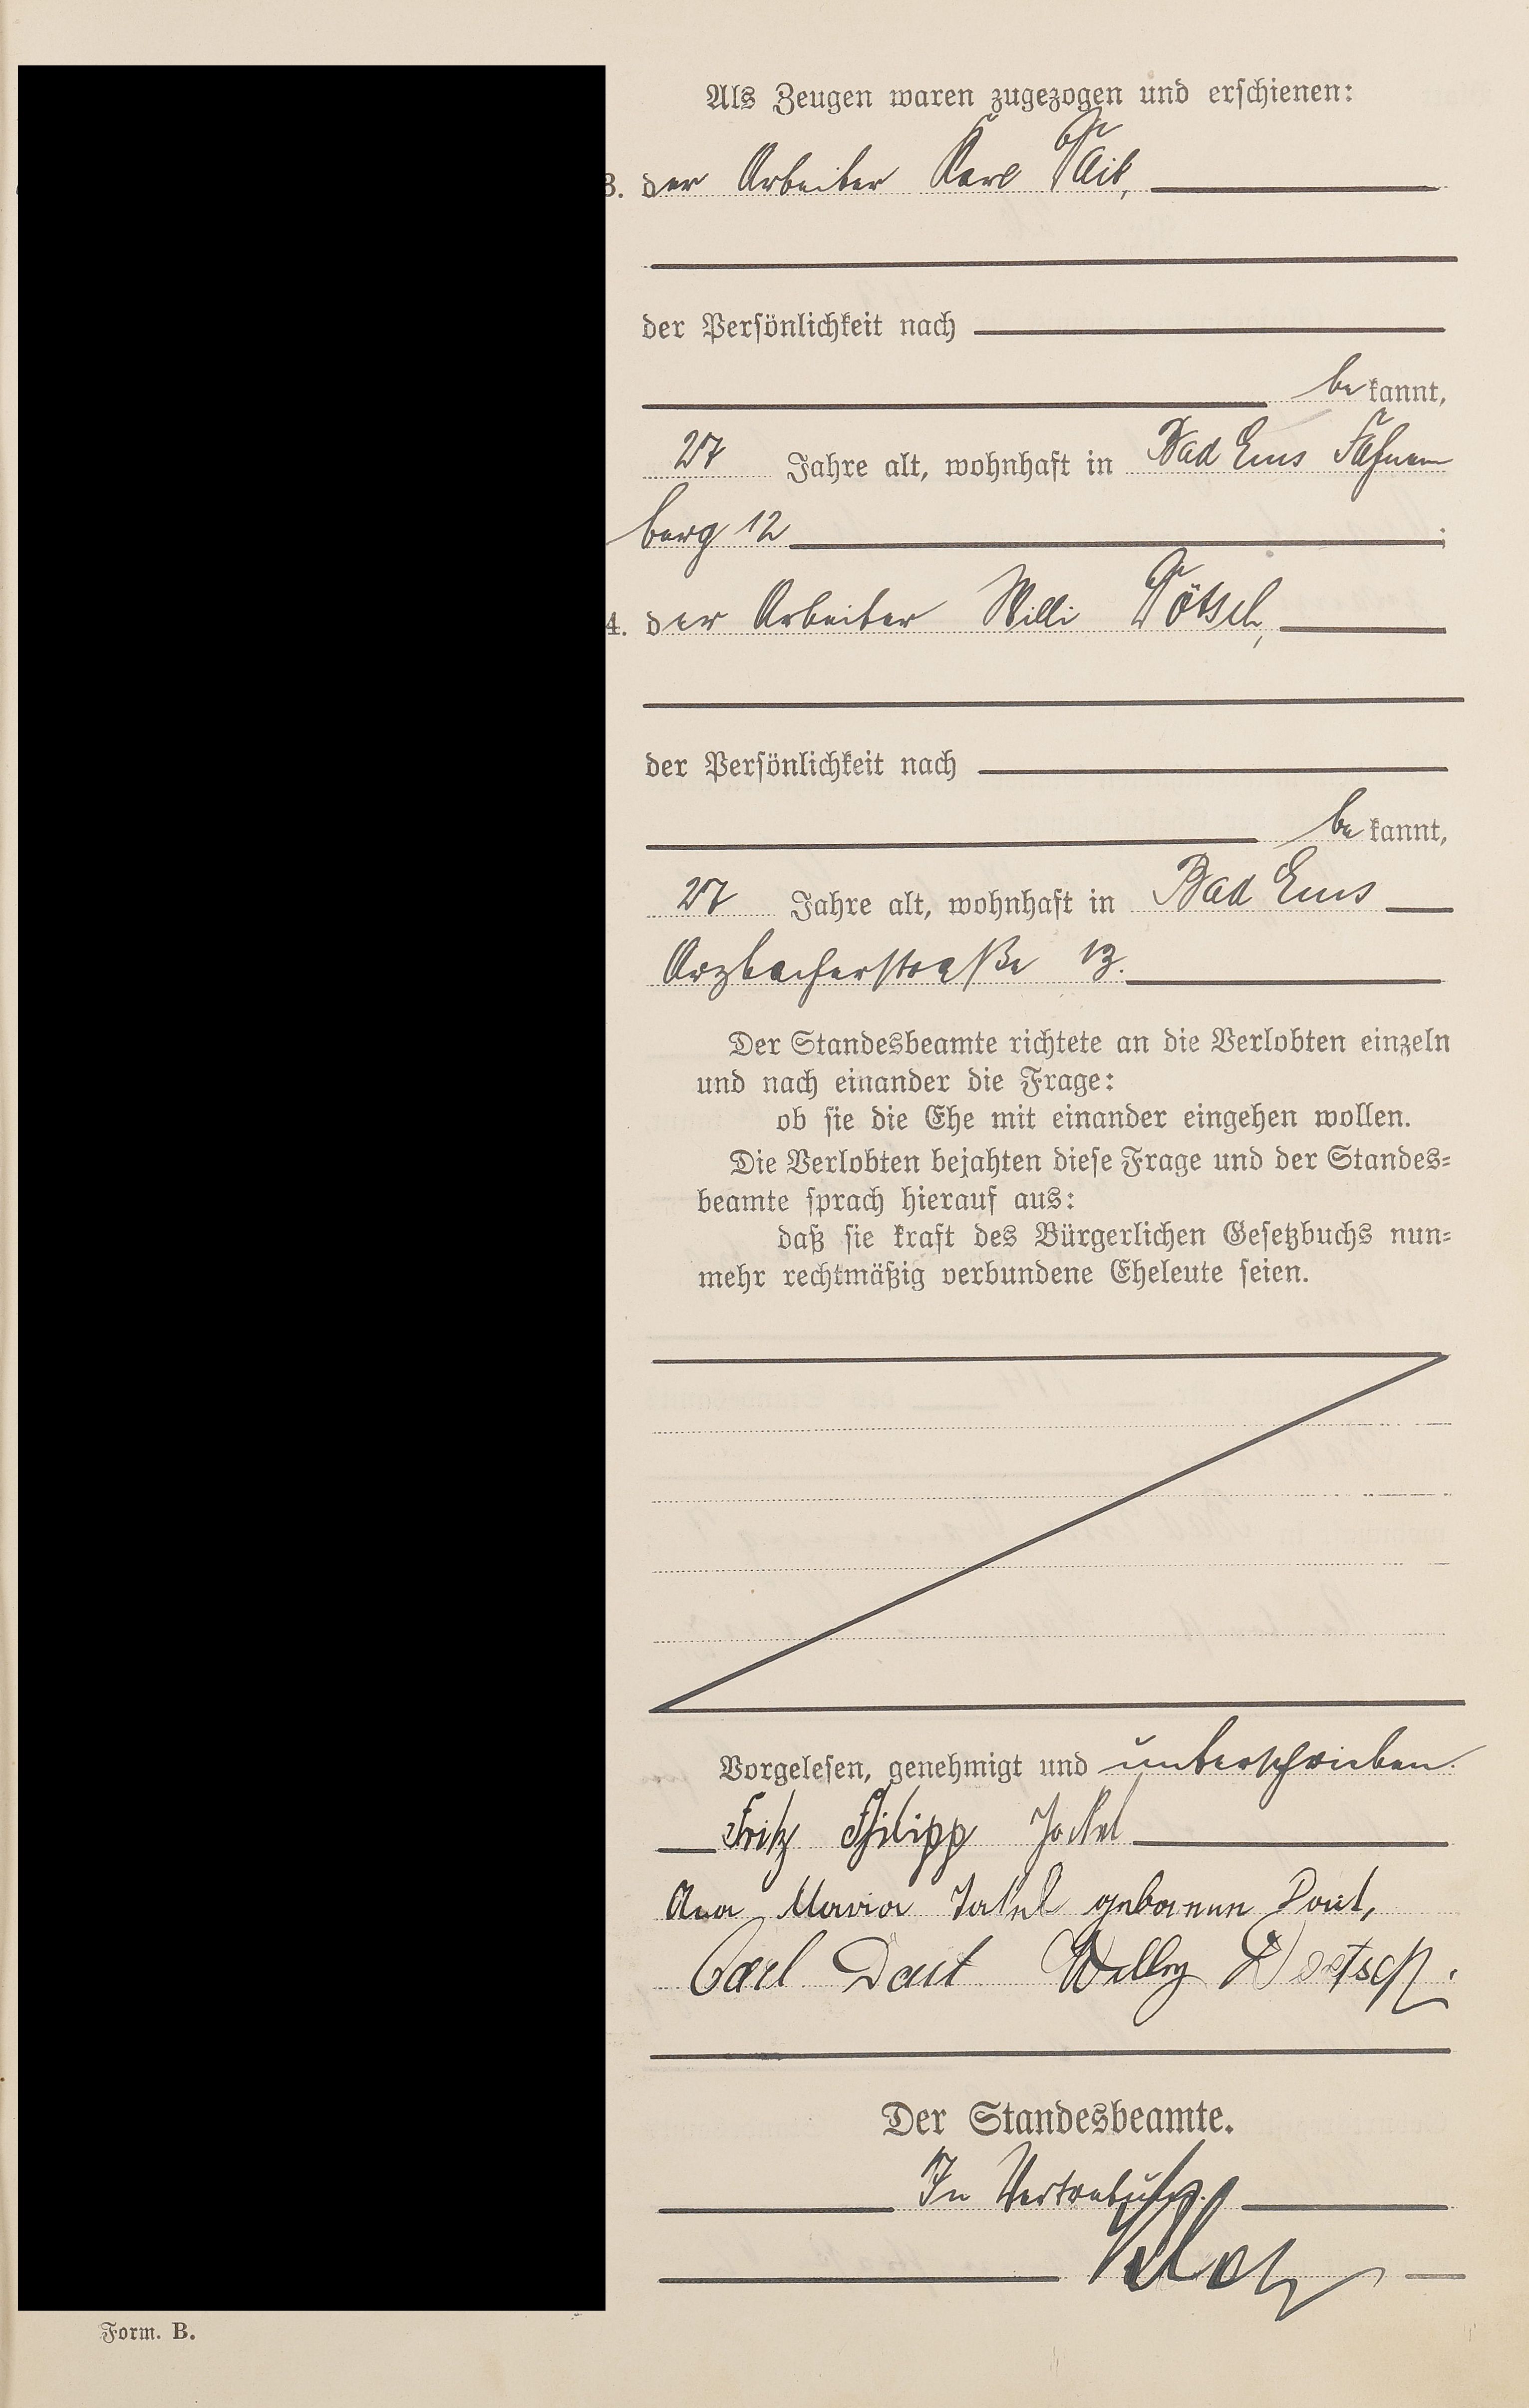 Als Zeugen waren zugezogen und erschienen:
3. der Arbeiter Karl
der Persönlichkeit nach
be kannt,
27 Jahre alt, wohnhaft in Bad Ems
berg 12 ;
4. der Arbeiter Willi Dötsch,
der Persönlichkeit nach
be kannt,
27 Jahre alt, wohnhaft in Bad Ems
Arzbacherstraße 13.
Der Standesbeamte richtete an die Verlobten einzeln
und nach einander die Frage:
ob sie die Ehe mit einander eingehen wollen.
Die Verlobten bejahten diese Frage und der Standes=
beamte sprach hierauf aus:
daß sie kraft des Bürgerlichen Gesetzbuchs nun=
mehr rechtmäßig verbundene Eheleute seien.
Vorgelesen, genehmigt und unterschrieben.
Fritz Philipp Jackel
Maria geborene
Carl Daut Willy Doetsch.
Der Standesbeamte.
In Vertretung.
Form. B.